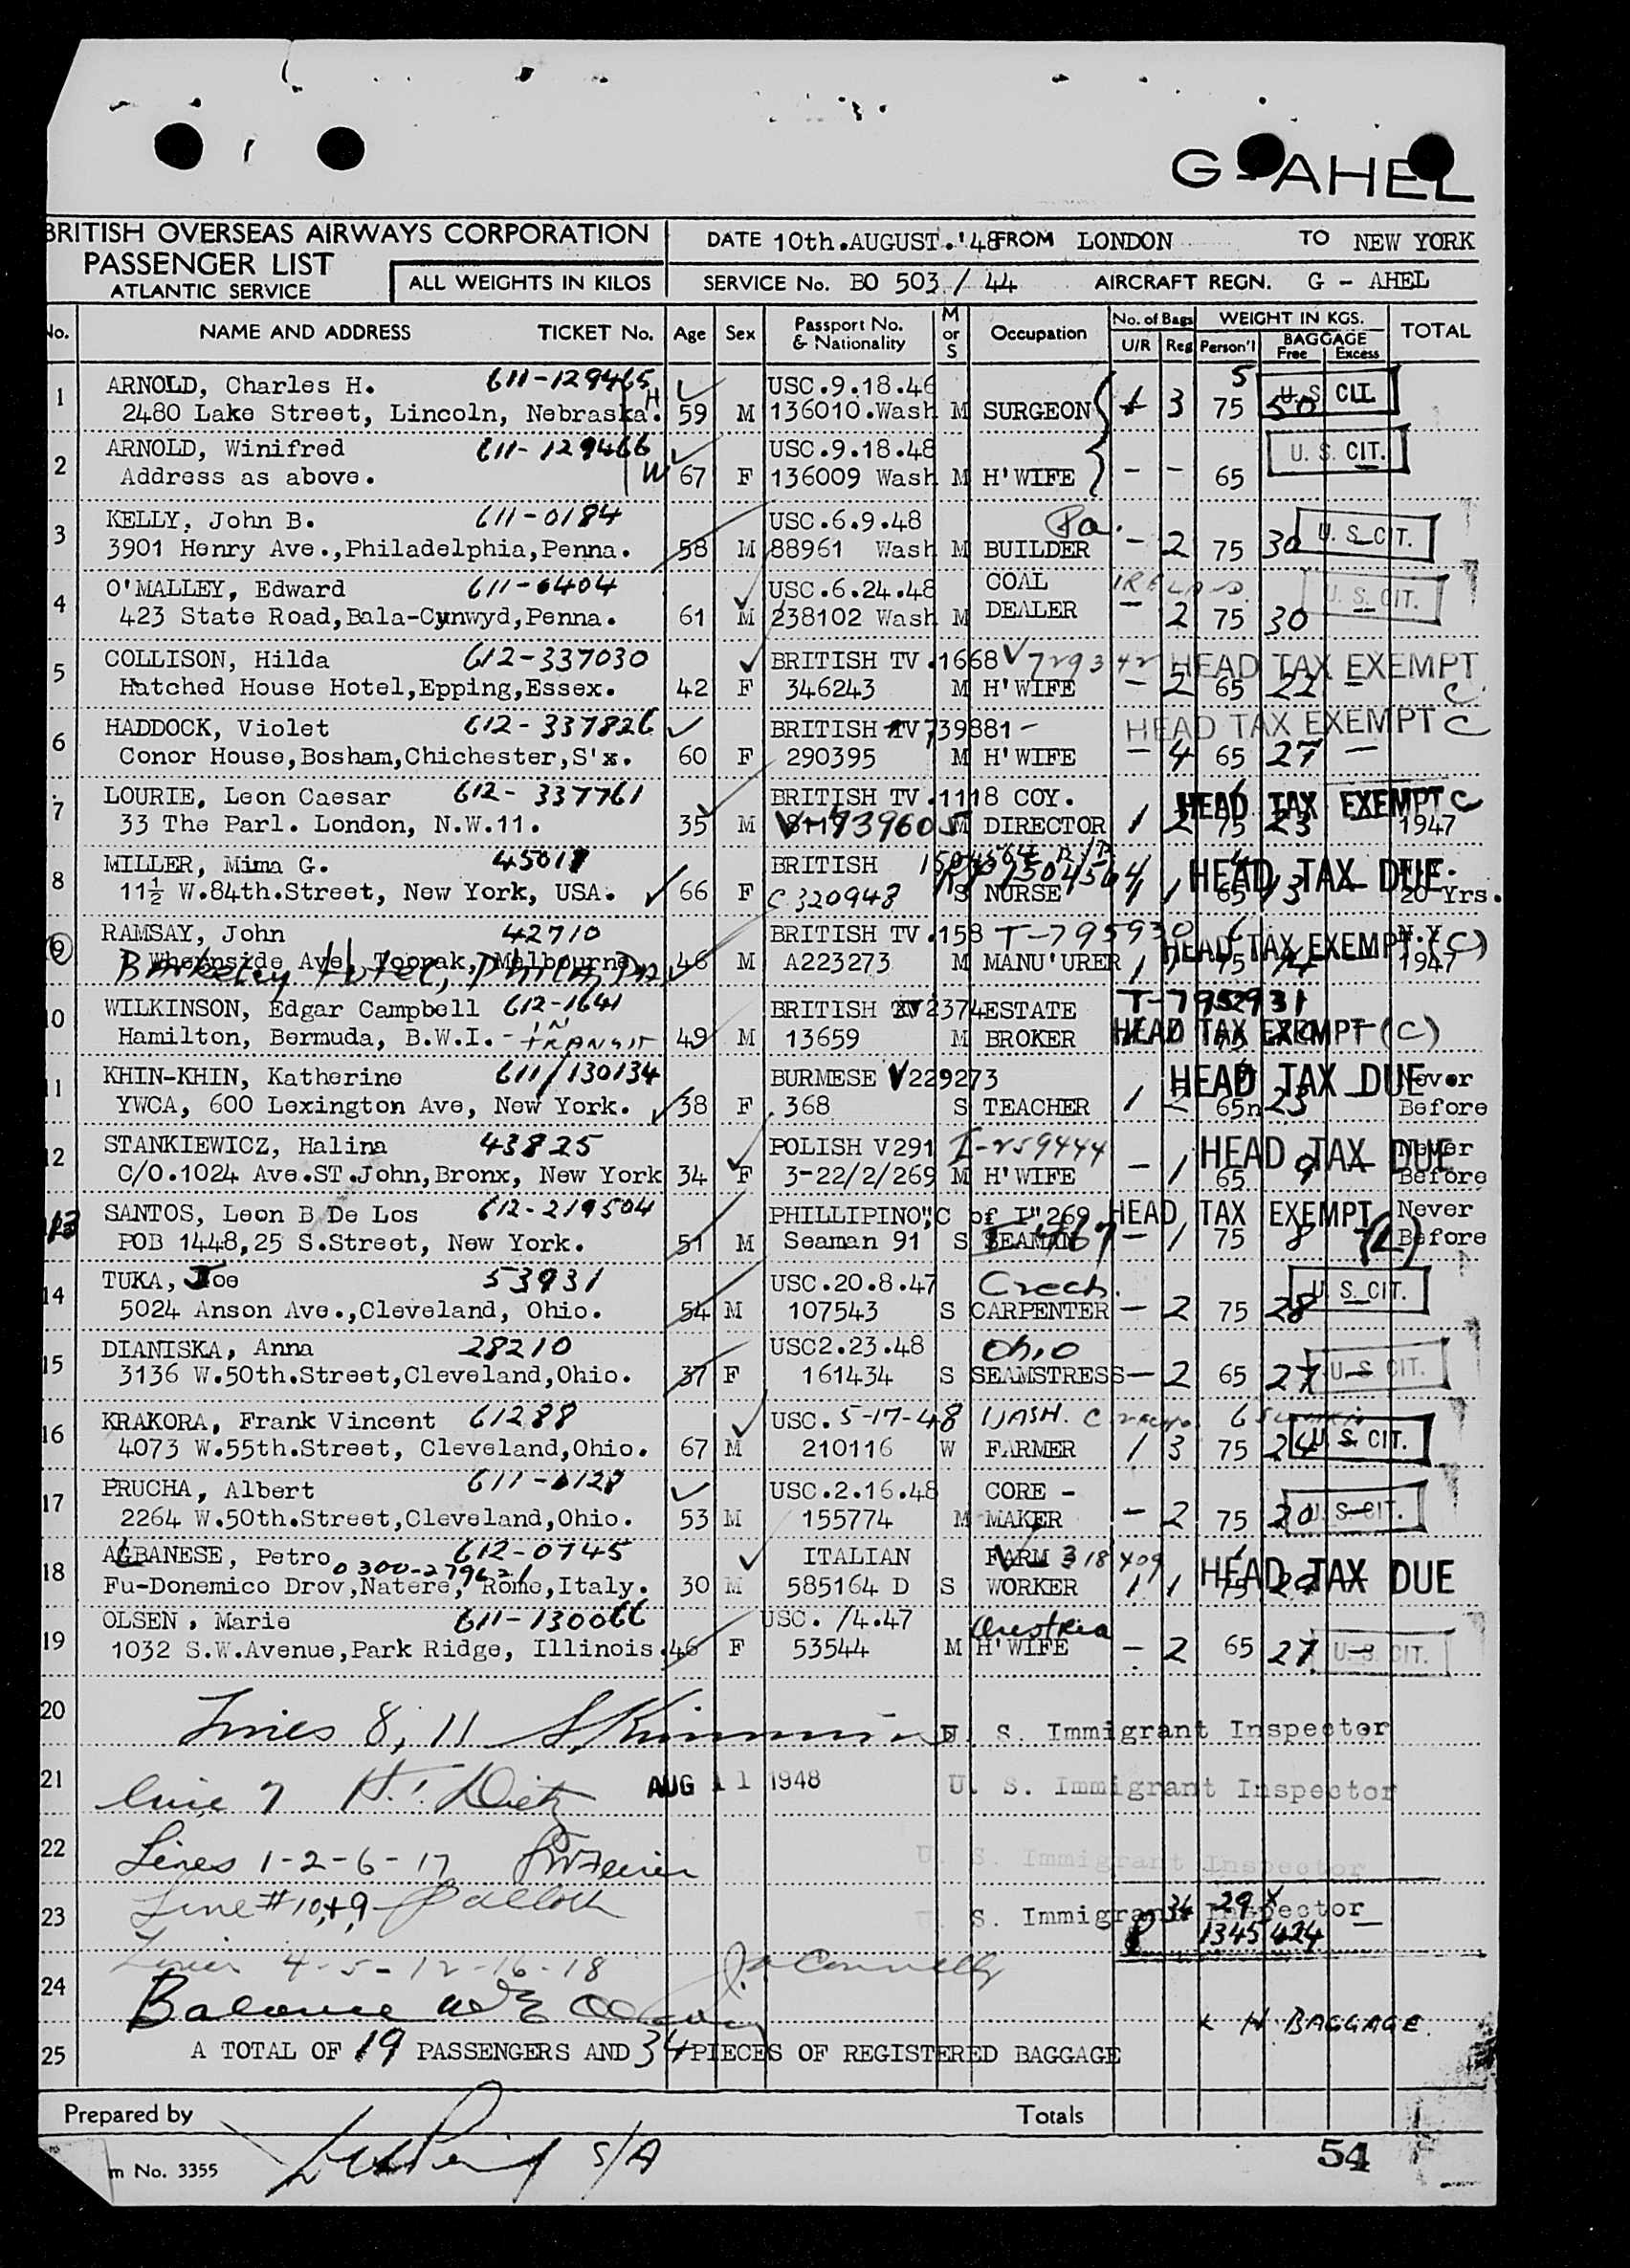 G-AHEL
BRITISH OVERSEAS AIRWAYS CORPORATION
PASSENGER LIST
ATLANTIC SERVICE
ALL WEIGHTS IN KILOS
DATE 10th.AUGUST.'48 FROM LONDON TO NEW YORK
SERVICE No. BO 503 / 44 AIRCRAFT REGN. G - AHEL
No. NAME AND ADDRESS TICKET No. Age Sex Passport No. & Nationality M or S Occupation No. of Bags U/R Reg WEIGHT IN KGS. Person'l BAGGAGE Free Excess TOTAL
1 ARNOLD, Charles H. 611-129465 USC.9.18.46 5 U.S. CIT.
2480 Lake Street, Lincoln, Nebraska. H 59 M 136010.Wash M SURGEON 3 75 50
2 ARNOLD, Winifred 611-129466 USC.9.18.48 U. S. CIT.
Address as above. W 67 F 136009 Wash M H'WIFE - - 65
3 KELLY, John B. 611-0184 USC.6.9.48 Pa. U. S. CIT.
3901 Henry Ave.,Philadelphia,Penna. 58 M 88961 Wash M BUILDER - 2 75 30
4 O'MALLEY, Edward 611-0404 USC.6.24.48 COAL IRELAND. U. S. CIT.
423 State Road,Bala-Cynwyd,Penna. 61 M 238102 Wash M DEALER - 2 75 30
5 COLLISON, Hilda 612-337030 BRITISH TV.1668 V729342 HEAD TAX EXEMPT
Hatched House Hotel,Epping,Essex. 42 F 346243 M H'WIFE - 2 65 22 - C
6 HADDOCK, Violet 612-337826 BRITISH TV 739881 - HEAD TAX EXEMPT C
Conor House,Bosham,Chichester,S'x. 60 F 290395 M H'WIFE - 4 65 27 -
7 LOURIE, Leon Caesar 612-337761 BRITISH TV.1118 COY. HEAD TAX EXEMPT C
33 The Parl. London, N.W.11. 35 M M DIRECTOR 1 2 75 23 1947
8 MILLER, Mima G. 45018 BRITISH HEAD TAX DUE
11½ W.84th.Street, New York, USA. 66 F C 320948 S NURSE 1 65 13 20 Yrs.
9 RAMSAY, John 42710 BRITISH TV.158 T-795930 HEAD TAX EXEMPT (C) N.Y.
Whernside Ave, Toorak, Melbourne 46 M A223273 M MANU'URER 1 75 14 1947
Barkeley Hotel, Phila, Pa
10 WILKINSON, Edgar Campbell 612-1641 BRITISH TV 2374 ESTATE T-795931
Hamilton, Bermuda, B.W.I. - IN TRANSIT 49 M 13659 M BROKER HEAD TAX EXEMPT (C)
11 KHIN-KHIN, Katherine 611/130134 BURMESE V229273 HEAD TAX DUE Never
YWCA, 600 Lexington Ave, New York. 38 F 368 S TEACHER 1 2 65 23 Before
12 STANKIEWICZ, Halina 43825 POLISH V291 I-259444 HEAD TAX DUE Never
C/O.1024 Ave.ST.John,Bronx, New York 34 F 3-22/2/269 M H'WIFE - 1 65 9 Before
13 SANTOS, Leon B De Los 612-219504 PHILLIPINO",C of I" 269 HEAD TAX EXEMPT Never
POB 1448,25 S.Street, New York. 51 M Seaman 91 S SEAMAN - 1 75 8 (L) Before
14 TUKA, Joe 53931 USC.20.8.47 Czech. U. S. CIT.
5024 Anson Ave.,Cleveland, Ohio. 54 M 107543 S CARPENTER - 2 75 28
15 DIANISKA, Anna 28210 USC2.23.48 Ohio
3136 W.50th.Street,Cleveland,Ohio. 37 F 161434 S SEAMSTRESS - 2 65 27 U-S CIT.
16 KRAKORA, Frank Vincent 61288 USC. 5-17-48 WASH. 6
4073 W.55th.Street, Cleveland,Ohio. 67 M 210116 W FARMER 1 3 75 24 U. S. CIT.
17 PRUCHA, Albert 611-0128 USC.2.16.48 CORE -
2264 W.50th.Street,Cleveland,Ohio. 53 M 155774 M MAKER - 2 75 20 U. S-CIT.
18 ALBANESE, Petro 612-0745 ITALIAN FARM HEAD TAX DUE
Fu-Donemico Drov,Natere, Rome,Italy. 30 M 585164 D S WORKER 1 1 75
19 OLSEN, Marie 611-130066 USC. /4.47 Austria
1032 S.W.Avenue,Park Ridge, Illinois. 46 F 53544 M H'WIFE - 2 65 27 U-S. CIT.
20 Lines 8, 11 U. S. Immigrant Inspector
21 Line 7 H. Dietz AUG 11 1948 U. S. Immigrant Inspector
22 Lines 1-2-6-17 U. S. Immigrant Inspector
23 Line #10+9 U. S. Immigrant Inspector
34 29 X
8 1345 424
24 Lines 4-5-12-16-18 J. Connelly
Balance
X H BAGGAGE.
25 A TOTAL OF 19 PASSENGERS AND 34 PIECES OF REGISTERED BAGGAGE
Prepared by Totals
S/A
m No. 3355
54